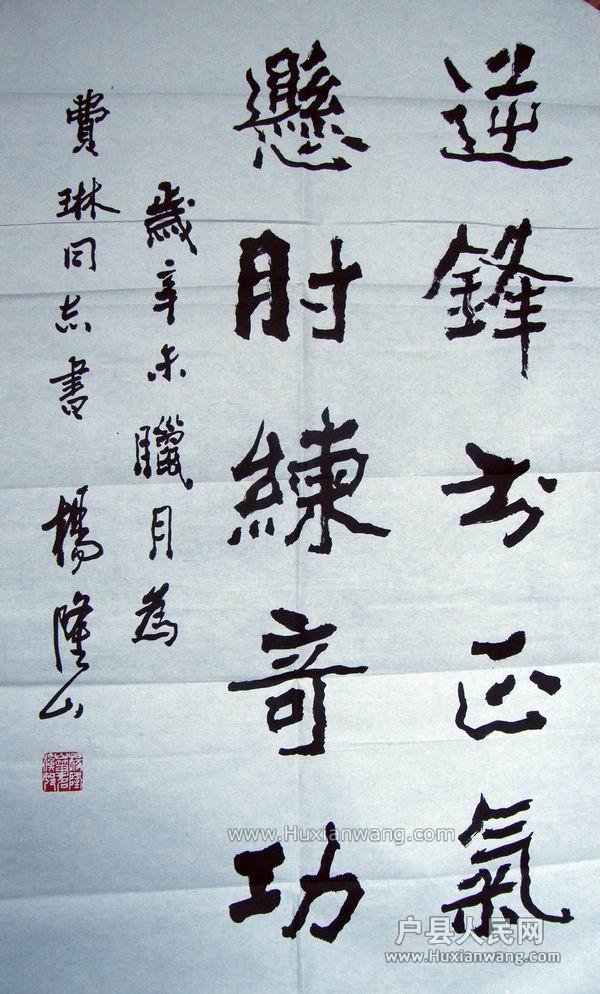 逆鋒书正氣
懸肘練奇功
歲辛未臘月為
費琳同志書 楊隆山
www.Huxianwang.com
户县人民网
www.Huxianwang.com